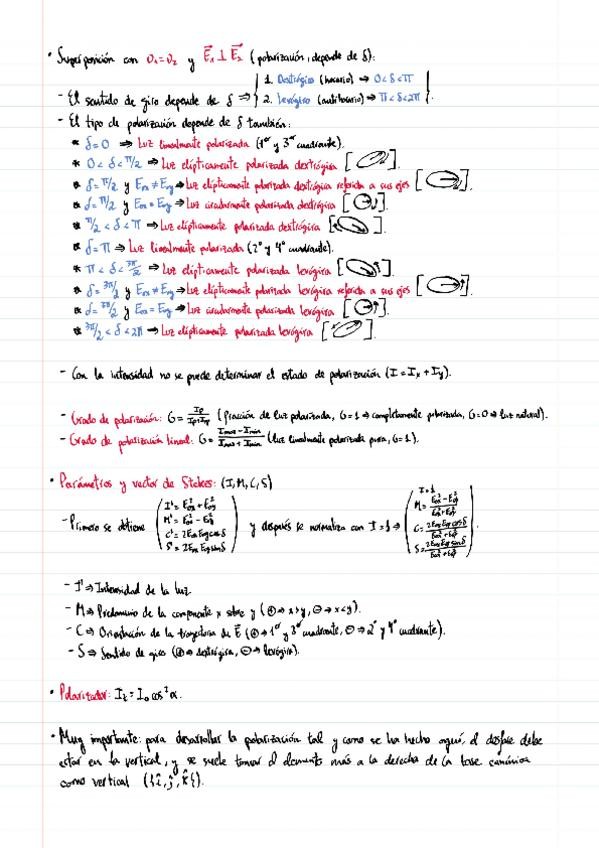 • Superposición con ω₁=ω₂ y E⃗₁⊥E⃗₂ (polarización, depende de δ):
- El sentido de giro depende de δ ⇒ { 1. Dextrógiro (horario) ⇒ 0<δ<π
2. Levógiro (antihorario) ⇒ π<δ<2π }.
- El tipo de polarización depende de δ también:
* δ=0 ⇒ Luz linealmente polarizada (1er y 3er cuadrante).
* 0<δ<π/2 ⇒ Luz elípticamente polarizada dextrógira [ ].
* δ=π/2 y E₀ₓ≠E₀y ⇒ Luz elípticamente polarizada dextrógira referida a sus ejes [ ].
* δ=π/2 y E₀ₓ=E₀y ⇒ Luz circularmente polarizada dextrógira [ ].
* π/2<δ<π ⇒ Luz elípticamente polarizada dextrógira [ ].
* δ=π ⇒ Luz linealmente polarizada (2º y 4º cuadrante).
* π<δ<3π/2 ⇒ Luz elípticamente polarizada levógira [ ].
* δ=3π/2 y E₀ₓ≠E₀y ⇒ Luz elípticamente polarizada levógira referida a sus ejes [ ].
* δ=3π/2 y E₀ₓ=E₀y ⇒ Luz circularmente polarizada levógira [ ].
* 3π/2<δ<2π ⇒ Luz elípticamente polarizada levógira [ ].
- Con la intensidad no se puede determinar el estado de polarización (I=Iₓ+Iy).
- Grado de polarización: G=Ip/(Ip+In) (fracción de luz polarizada, G=1⇒completamente polarizada, G=0⇒luz natural).
- Grado de polarización lineal: G=(Imax-Imin)/(Imax+Imin) (luz linealmente polarizada pura, G=1).
• Parámetros y vector de Stokes: (I,M,C,S)
- Primero se obtiene (I'=E₀ₓ²+E₀y²
M'=E₀ₓ²-E₀y²
C'=2E₀ₓE₀y cosδ
S'=2E₀ₓE₀y sinδ) y después se normaliza con I=1 ⇒ (I=1
M=(E₀ₓ²-E₀y²)/(E₀ₓ²+E₀y²)
C=(2E₀ₓE₀y cosδ)/(E₀ₓ²+E₀y²)
S=(2E₀ₓE₀y sinδ)/(E₀ₓ²+E₀y²)).
- I' ⇒ Intensidad de la luz
- M ⇒ Predominio de la componente x sobre y (⊕⇒x>y, ⊖⇒x<y).
- C ⇒ Orientación de la trayectoria de E⃗ (⊕⇒1er y 3er cuadrante, ⊖⇒2º y 4º cuadrante).
- S ⇒ Sentido de giro (⊕⇒dextrógira, ⊖⇒levógira).
• Polarizador: I_t=I₀cos²α.
• Muy importante: para desarrollar la polarización tal y como se ha hecho aquí, el desfase debe
estar en la vertical, y se suele tomar el elemento más a la derecha de la base canónica
como vertical ({î,ĵ,k̂}).